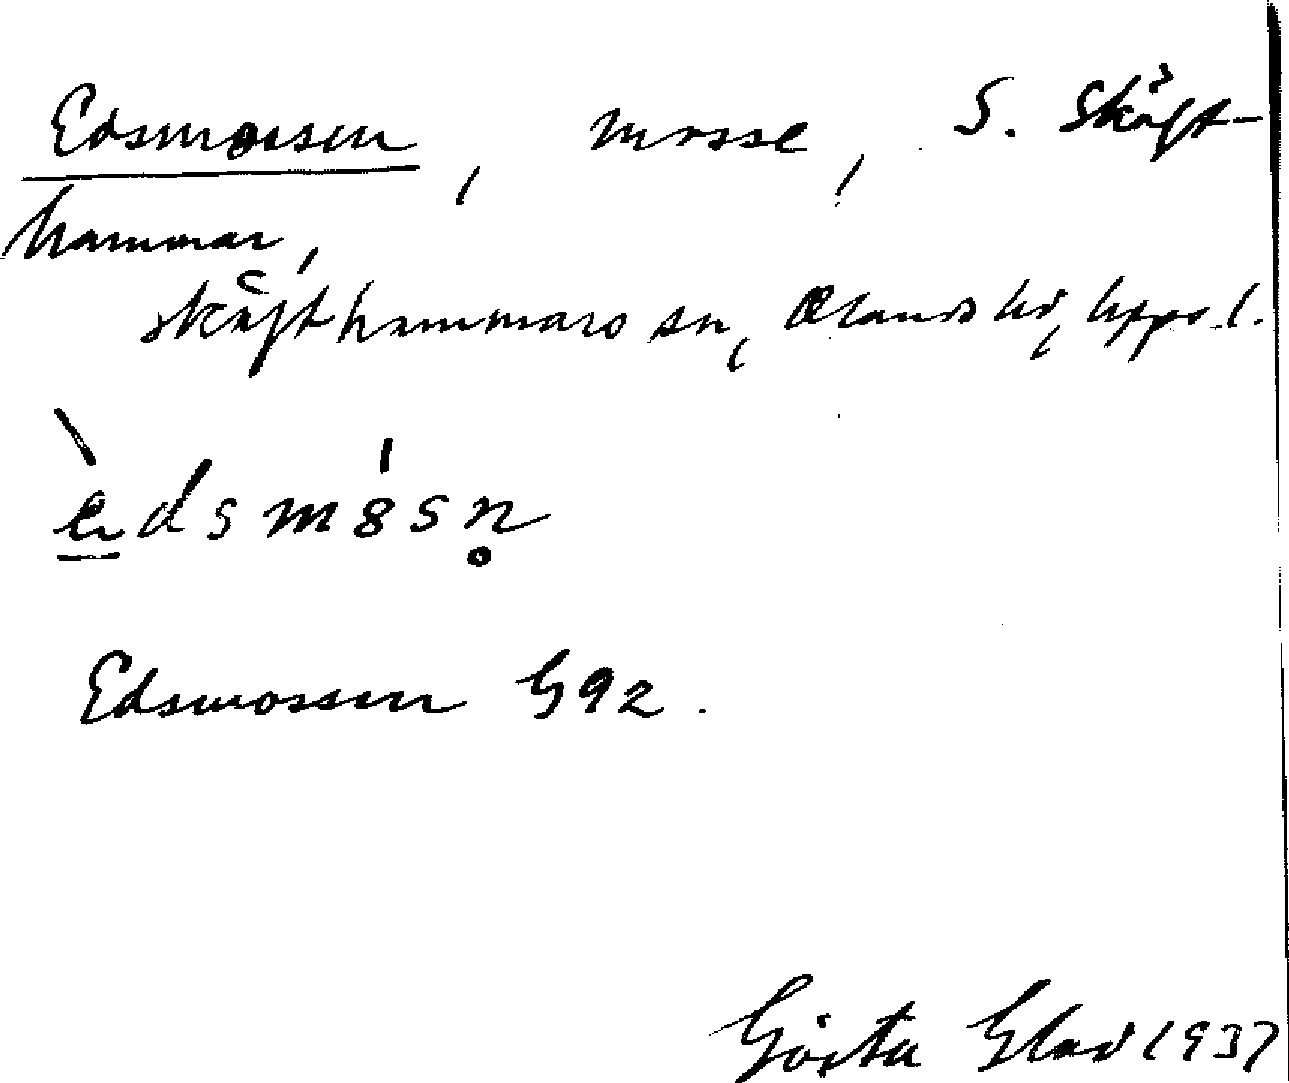 Edsmossen, mosse, S. Skäft-
hammar,
Skäfthammars sn, Olands hd, Upps. l.
èdsm8sn̥
Edsmossen G92.
Gösta Glad 1937